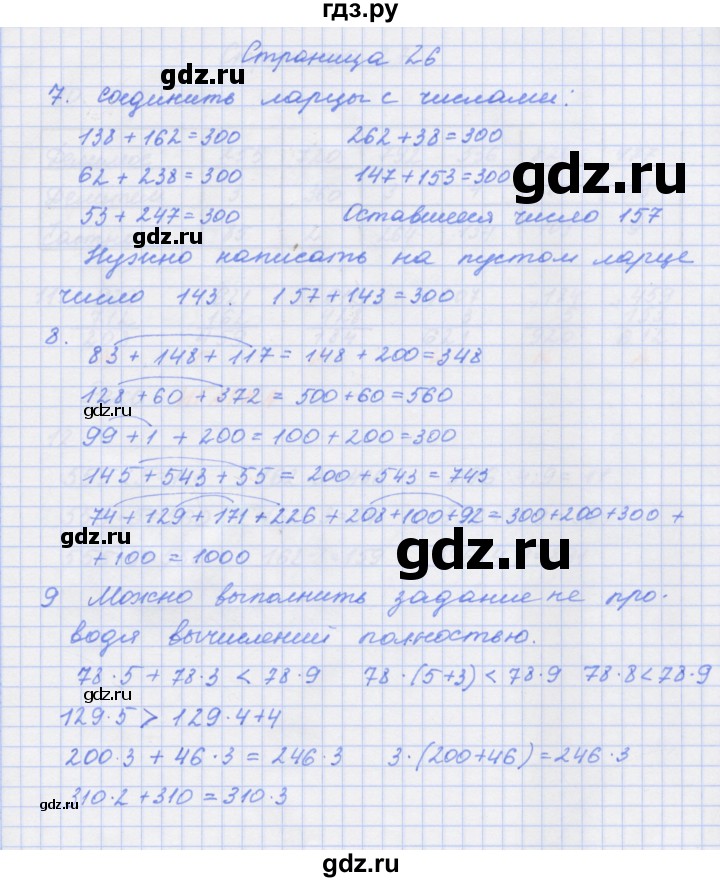 гдз.ру
Страница 26
7. Соединить ларцы с числами:
138 + 162 = 300 262 + 38 = 300
62 + 238 = 300 147 + 153 = 300
53 + 247 = 300 Оставшееся число 157
Нужно написать на пустом ларце
число 143. 157 + 143 = 300
8.
83 + 148 + 117 = 148 + 200 = 348
128 + 60 + 372 = 500 + 60 = 560
99 + 1 + 200 = 100 + 200 = 300
145 + 543 + 55 = 200 + 543 = 743
74 + 129 + 171 + 226 + 208 + 100 + 92 = 300 + 200 + 300 +
+ 100 = 1000
9 Можно выполнить задание не про-
водя вычислений полностью.
78·5 + 78·3 < 78·9 78·(5+3) < 78·9 78·8 < 78·9
129·5 > 129·4 + 4
200·3 + 46·3 = 246·3 3·(200+46) = 246·3
310·2 + 310 = 310·3
gdz.ru
gdz.ru
gdz.ru
gdz.ru
gdz.ru
gdz.ru
gdz.ru
gdz.ru
gdz.ru
gdz.ru